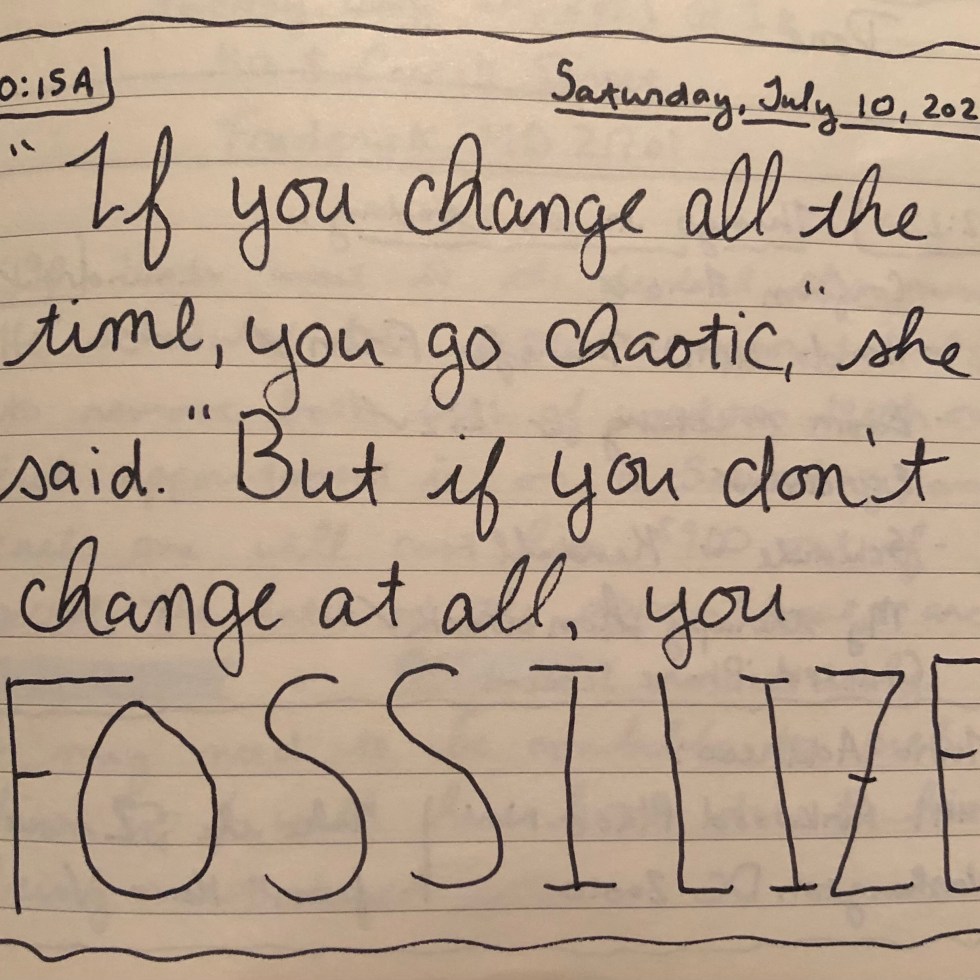 0:15A
Saturday, July 10, 202
"If you change all the
time, you go chaotic," she
said. "But if you don't
change at all, you
FOSSILIZE